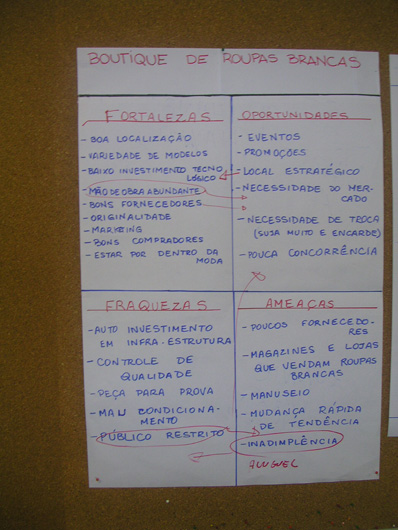 BOUTIQUE DE ROUPAS BRANCAS
FORTALEZAS
- BOA LOCALIZAÇÃO
- VARIEDADE DE MODELOS
- BAIXO INVESTIMENTO TECNO
LÓGICO
- MÃO DE OBRA ABUNDANTE
- BONS FORNECEDORES
- ORIGINALIDADE
- MARKETING
- BONS COMPRADORES
- ESTAR POR DENTRO DA
MODA
OPORTUNIDADES
- EVENTOS
- PROMOÇÕES
- LOCAL ESTRATÉGICO
- NECESSIDADE DO MER-
CADO
- NECESSIDADE DE TROCA
(SUJA MUITO E ENCARDE)
- POUCA CONCORRÊNCIA
FRAQUEZAS
- AUTO INVESTIMENTO
EM INFRA-ESTRUTURA
- CONTROLE DE
QUALIDADE
- PEÇA PARA PROVA
- MAU CONDICIONA-
MENTO
- PÚBLICO RESTRITO
AMEAÇAS
- POUCOS FORNECEDO-
RES
- MAGAZINES E LOJAS
QUE VENDAM ROUPAS
BRANCAS
- MANUSEIO
- MUDANÇA RÁPIDA
DE TENDÊNCIA
- INADIMPLÊNCIA
ALUGUEL